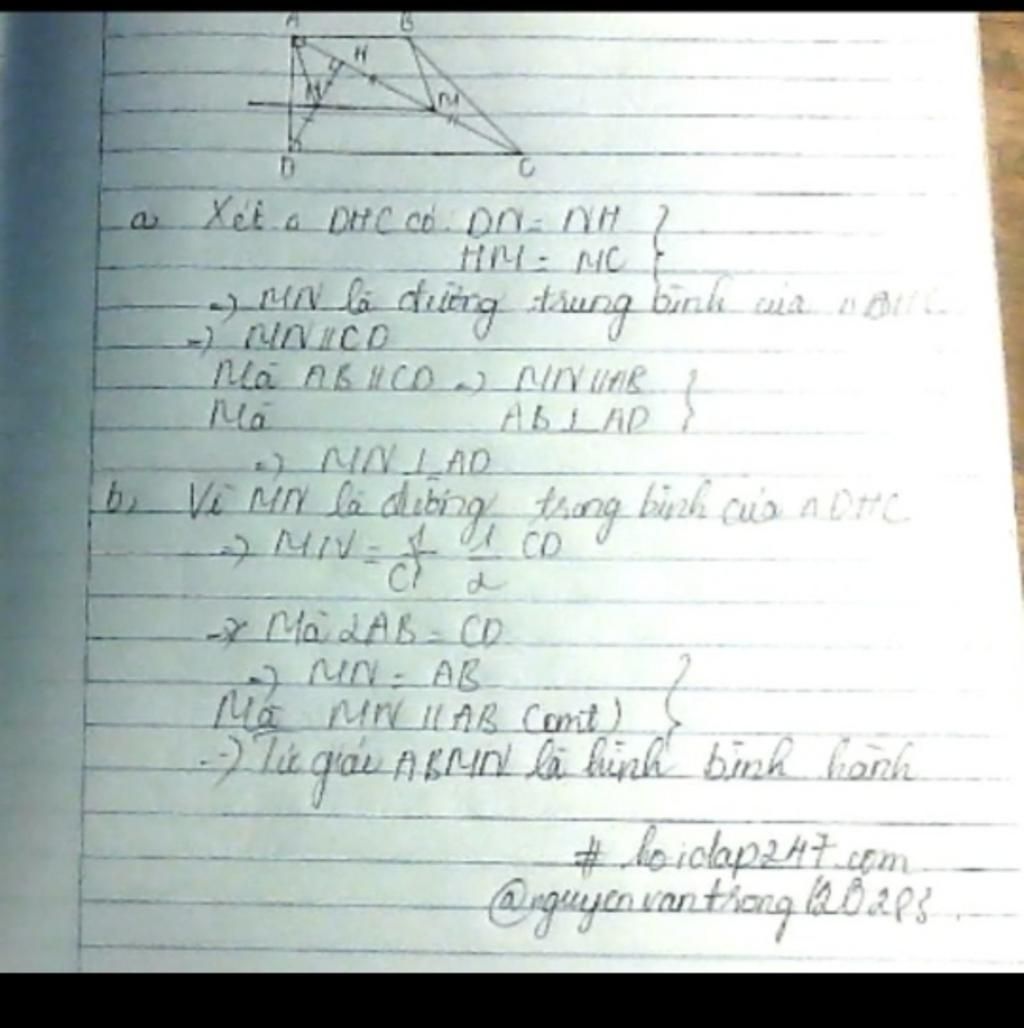 A B
H
N M
D C
a, Xét Δ DHC có: DN = NH }
HM = MC
=> MN là đường trung bình của Δ DHC
=> MN // CD
Mà AB // CD => MN // AB }
Mà AB ⊥ AD
=> MN ⊥ AD
b, Vì MN là đường trung bình của Δ DHC
=> MN = 1/2 CD
Mà 2AB = CD
=> MN = AB }
Mà MN // AB (cmt)
=> Tứ giác ABMN là hình bình hành
# hoidap247.com
@nguyenvantrong